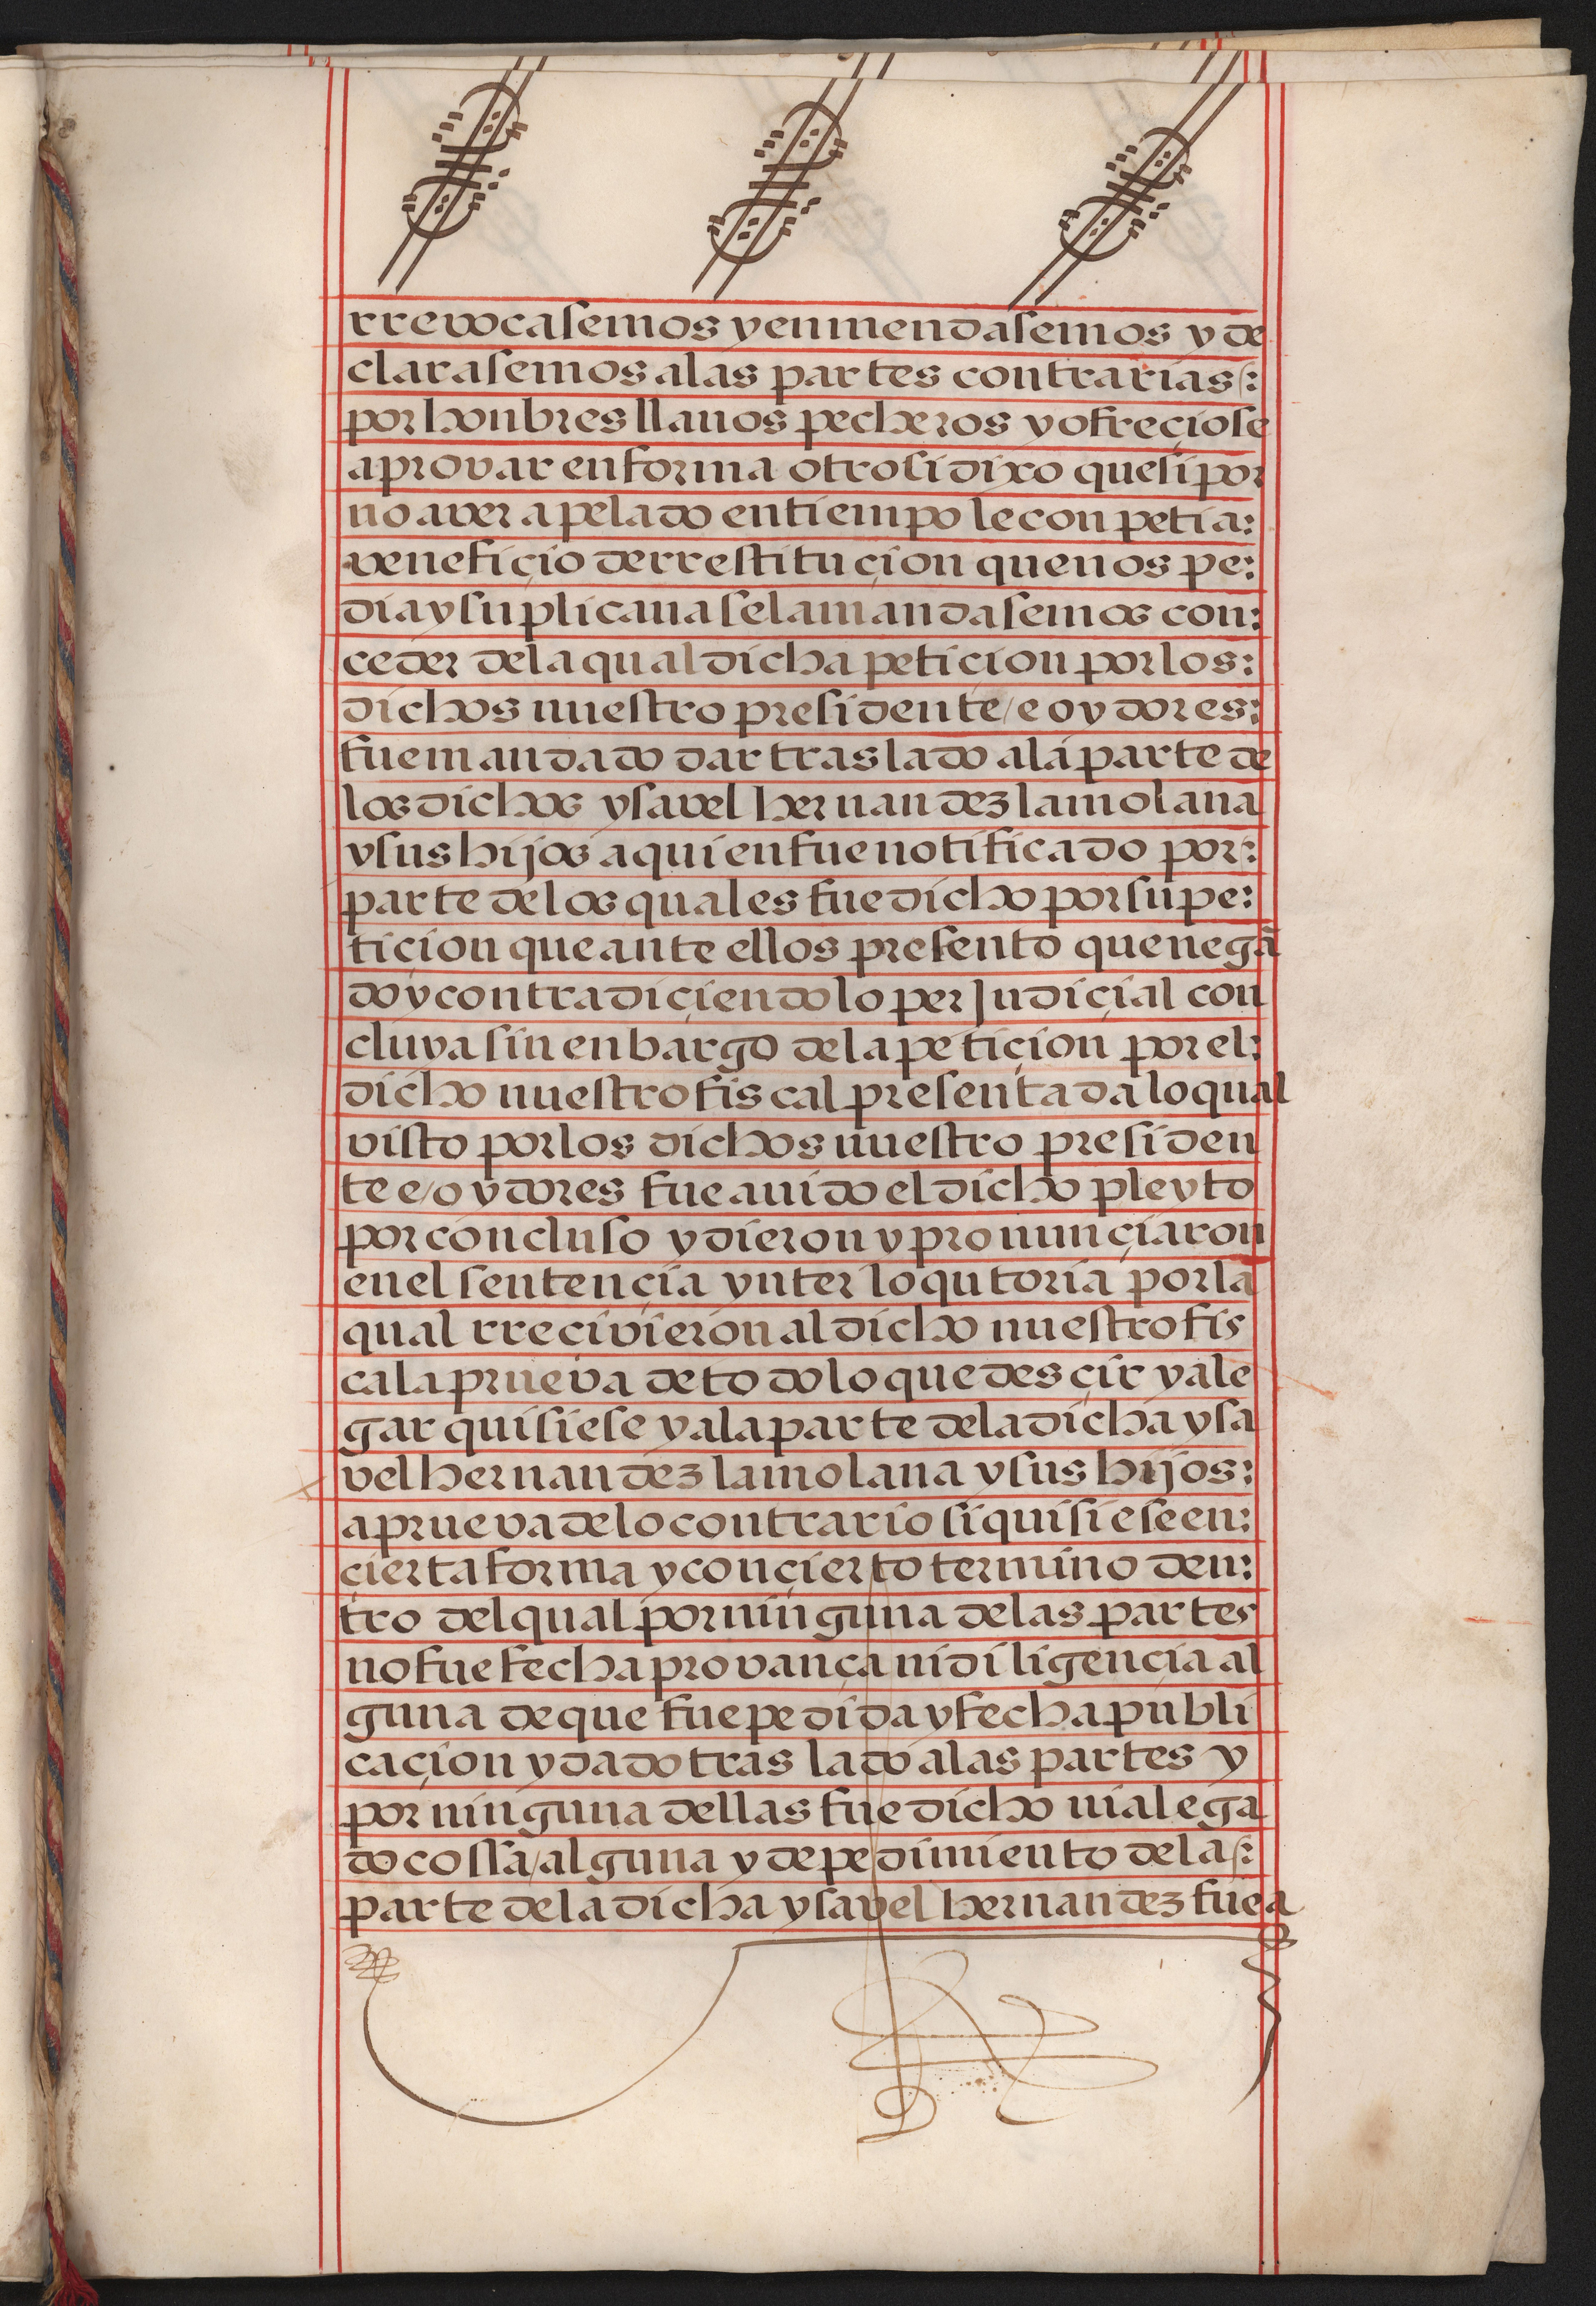 rrevocasemos y enmendasemos y de
clarasemos a las partes contrarias:
por honbres llanos pecheros y ofreçiose
a provar en forma otrosi dixo que si por
no aver apelado en tiempo le conpetia:
veneficio de rrestituçion que nos pe:
dia y suplicaua se la mandasemos con:
ceder de la qual dicha peticion por los:
dichos nuestro presidente / e oydores:
fue mandado dar traslado a la parte de
los dichos ysavel hernandez la molana
y sus hijos a quien fue notificado por:
parte de los quales fue dicho por su pe:
tiçion que ante ellos presento que negã
do y contradiçiendo lo perJudiçial con
cluya sin enbargo de la petiçion por el:
dicho nuestro fiscal presentada lo qual
visto por los dichos nuestro presiden
te e/oydores fue auido el dicho pleyto
por concluso y dieron y pronunçiaron
en el sentençia ynterloqutoria por la
qual rreçivieron al dicho nuestro fis
cal a prueva de todo lo que desçir y ale
gar quisiese y a la parte de la dicha ysa
vel hernandez la molana y sus hijos:
a prueva de lo contrario si quisiese en:
çierta forma y con çierto termino den:
tro del qual por ninguna de las partes
no fue fecha provança ni diligençia al
guna de que fue pedida y fecha publi
caçion y dado traslado a las partes y
por ninguna dellas fue dicho ni alega
do cossa/alguna y de pedimiento de la:
parte de la dicha ysavel hernandez fue a